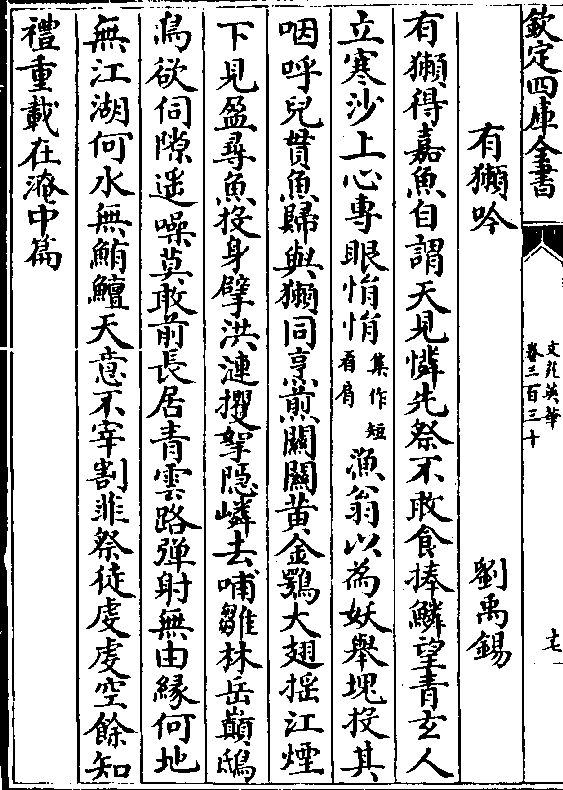 欽定四庫全書
文苑英華
卷三百三十
有獺吟
劉禹錫
有獺得嘉魚自謂天見憐先祭不敢食捧鱗望青玄人
立寒沙上心專眼悁悁集作短看肩漁翁以為妖舉塊投其
咽呼兒貫魚歸與獺同烹煎闗闗黄金鶚大翅搖江煙
下見盈尋魚投身擘洪漣攫拏隱嶙去哺雛林岳巔鴟
鳥欲伺隙遥噪莫敢前長居青雲路彈射無由緣何地
無江湖何水無鮪鱣天意不宰割非祭徒虔虔空餘知
禮重載在淹中篇